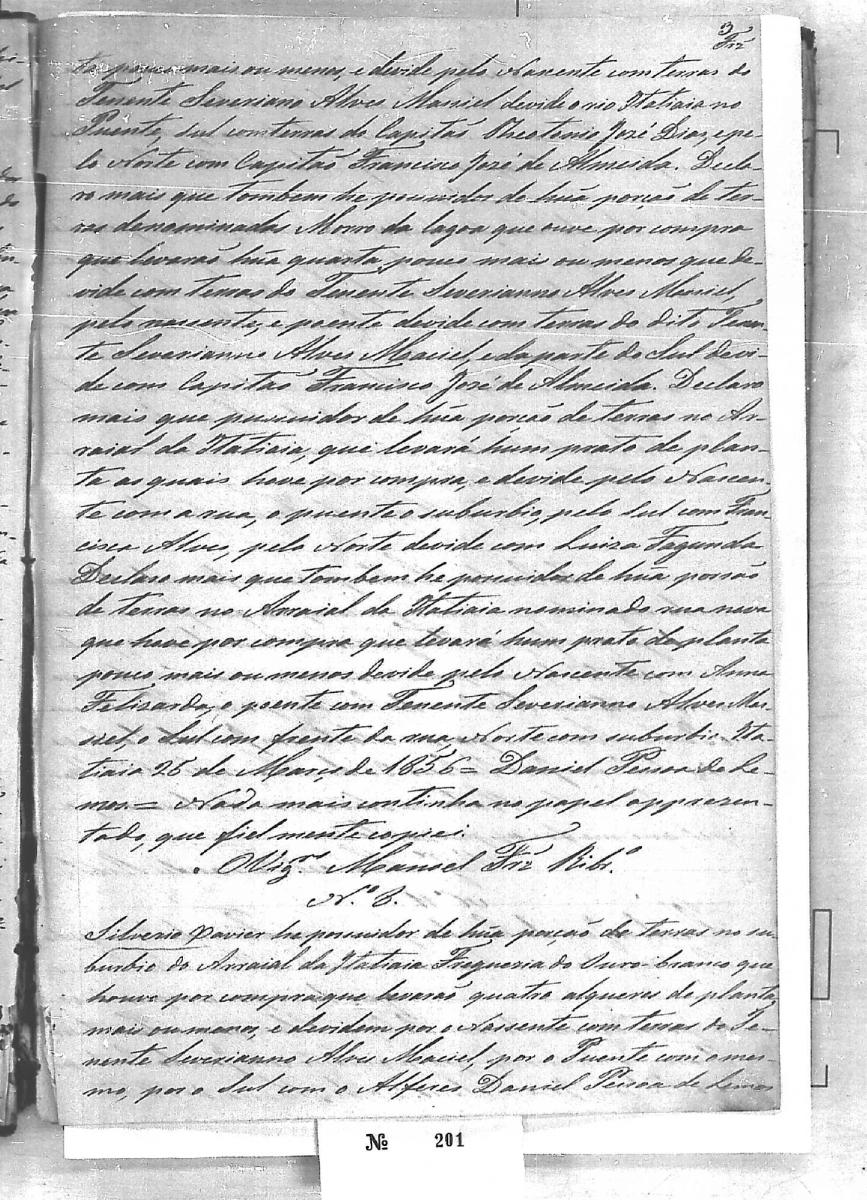 3
Frz
ta pouco mais ou menos, e devide pelo Nascente com terras do
Tenente Severiano Alves Massiel devide o rio Itatiaia no
Puente, sul com terras do Capitão Theotonio José Dias, e pe-
lo Norte com Capitão Francisco José de Almeida. Decla-
ro mais que tombem he possuidor de húa porção de ter-
ras denominadas Morro da lagoa que ouve por compra
que levarão húa quarta, pouco mais ou menos que de-
vide com terras do Tenente Severianno Alves Maciel,
pelo nascente, e poente devide com terras do dito Tenen-
te Severianno Alves Maciel, e da parte do Sul devi-
de com Capitão Francisco José de Almeida. Declaro
mais que pussuidor de húa porção de terras no Ar-
raial da Itatiaia, que levará hum prato de plan-
ta as quais hove por compra, e devide pelo Nascen-
te com a rua, o puente o suburbio, pelo Sul com Fran-
cisca Alves, pelo Norte devide com Luiza Fagunda
Declaro mais que tombem he possuidor de húa porsão
de terras no Arraial da Itatiaia nominado rua nova
que hove por compra que levará hum prato de planta
pouco mais ou menos devide pelo Nascente com Anna
Felizarda, o poente com Tenente Severianno Alves Mas-
siel, o Sul com frente da rua, Norte com suburbio. Ita-
tiaia 26 de Março de 1856 = Daniel Pessoa de Le-
mos. = Nada mais continha no papel appresen-
tado, que fielmente copiei.
O Vigro. Manoel Frz Ribro.
N.o 8.
Silverio Xavier he possuidor de húa porção de terras no su-
burbio do Arraial da Itatiaia Freguezia do Ouro branco que
houve por compra que levarão quatro alqueres de planta,
mais ou menos, e devidem por o Nassente com terras do Te-
nente Severianno Alves Maciel, por o Puente com o mes-
mo, por o Sul com o Alferes Daniel Pessoa de Lemos
No 201